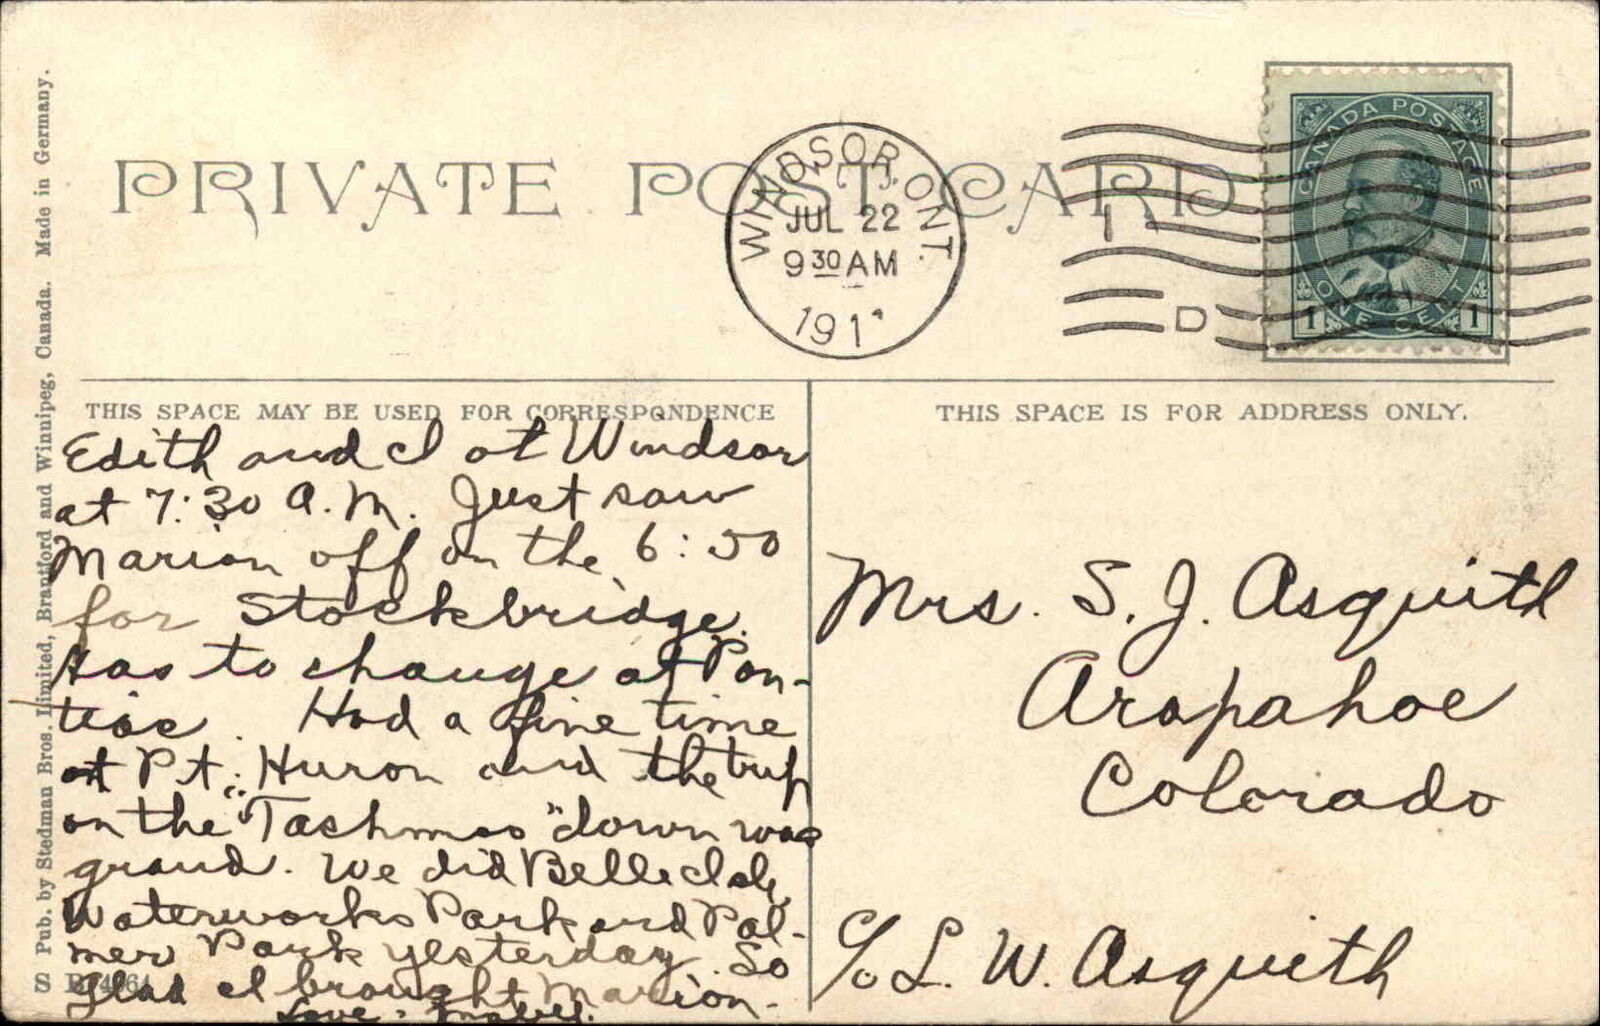 PRIVATE POST CARD
WINDSOR, ONT.
JUL 22
9 30 AM
191
D
CANADA POSTAGE
1 ONE CENT 1
THIS SPACE MAY BE USED FOR CORRESPONDENCE
Edith and I at Windsor
at 7:30 A.M. Just saw
Marion off on the 6:50
for Stockbridge.
Has to change at Pon-
tiac. Had a fine time
at Pt. Huron and the trip
on the "Tashmoo" down was
grand. We did Belle Isle,
Waterworks Park and Pal-
mer Park yesterday. So
glad I brought Marion.
Love - Mabel.
THIS SPACE IS FOR ADDRESS ONLY.
Mrs. S. J. Asquith
Arapahoe
Colorado
c/o L. W. Asquith
Pub. by Stedman Bros. Limited, Brantford and Winnipeg, Canada. Made in Germany.